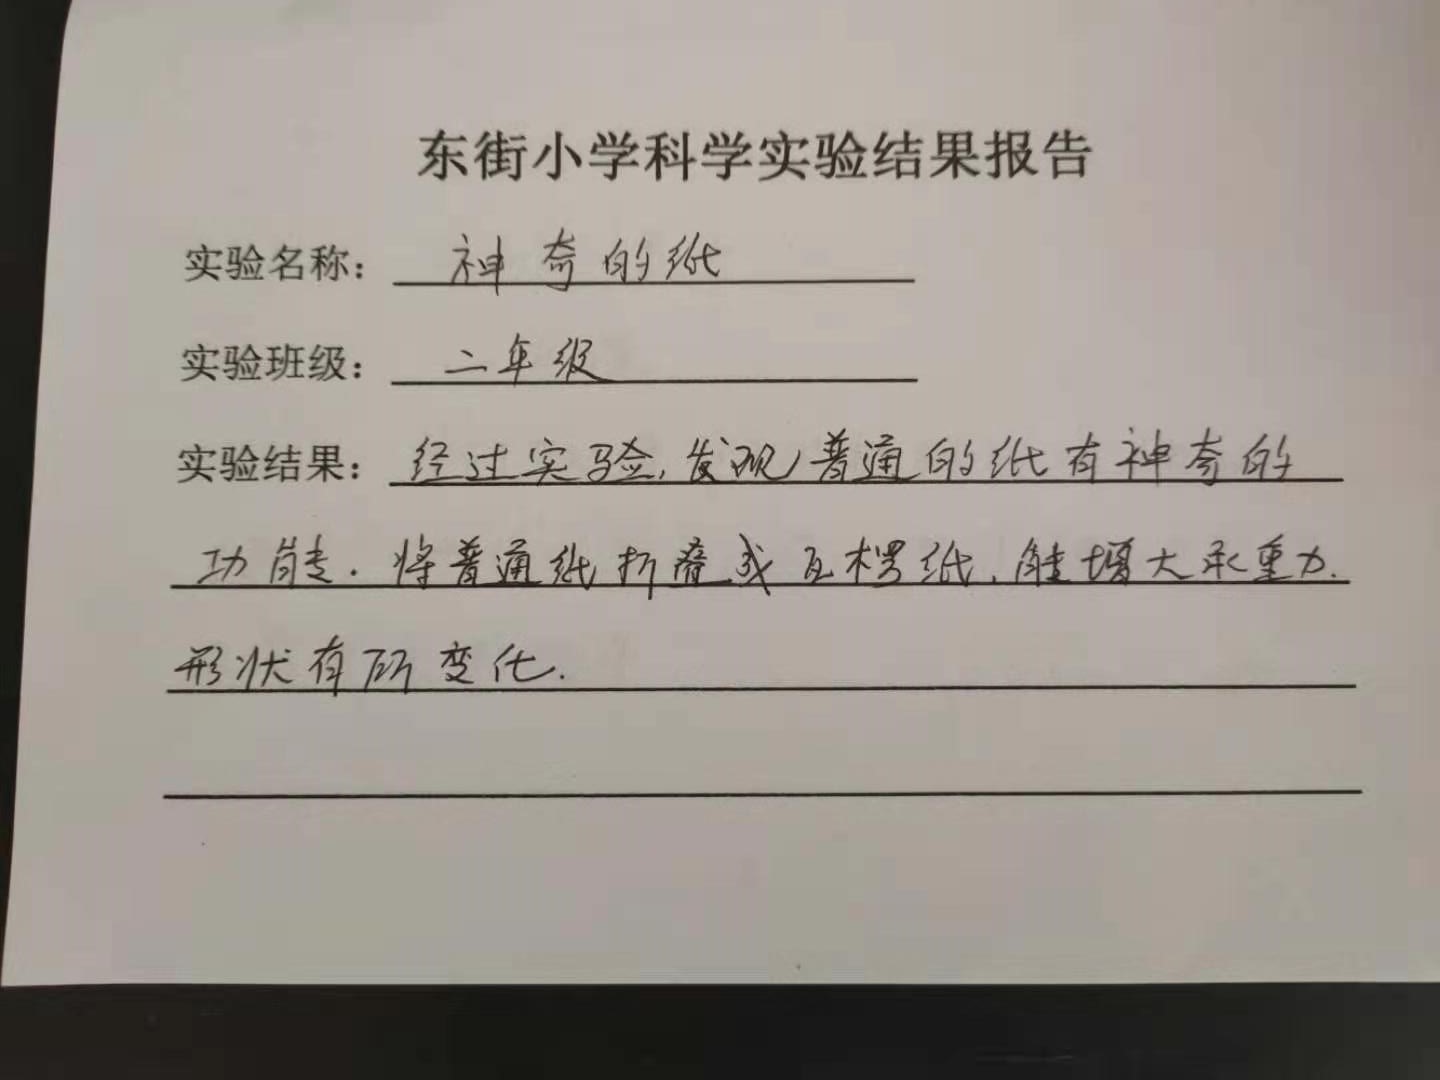 东街小学科学实验结果报告
实验名称：神奇的纸
实验班级：二年级
实验结果：经过实验,发现普通的纸有神奇的
功能.将普通纸折叠成瓦楞纸,能增大承重力.
形状有所变化.